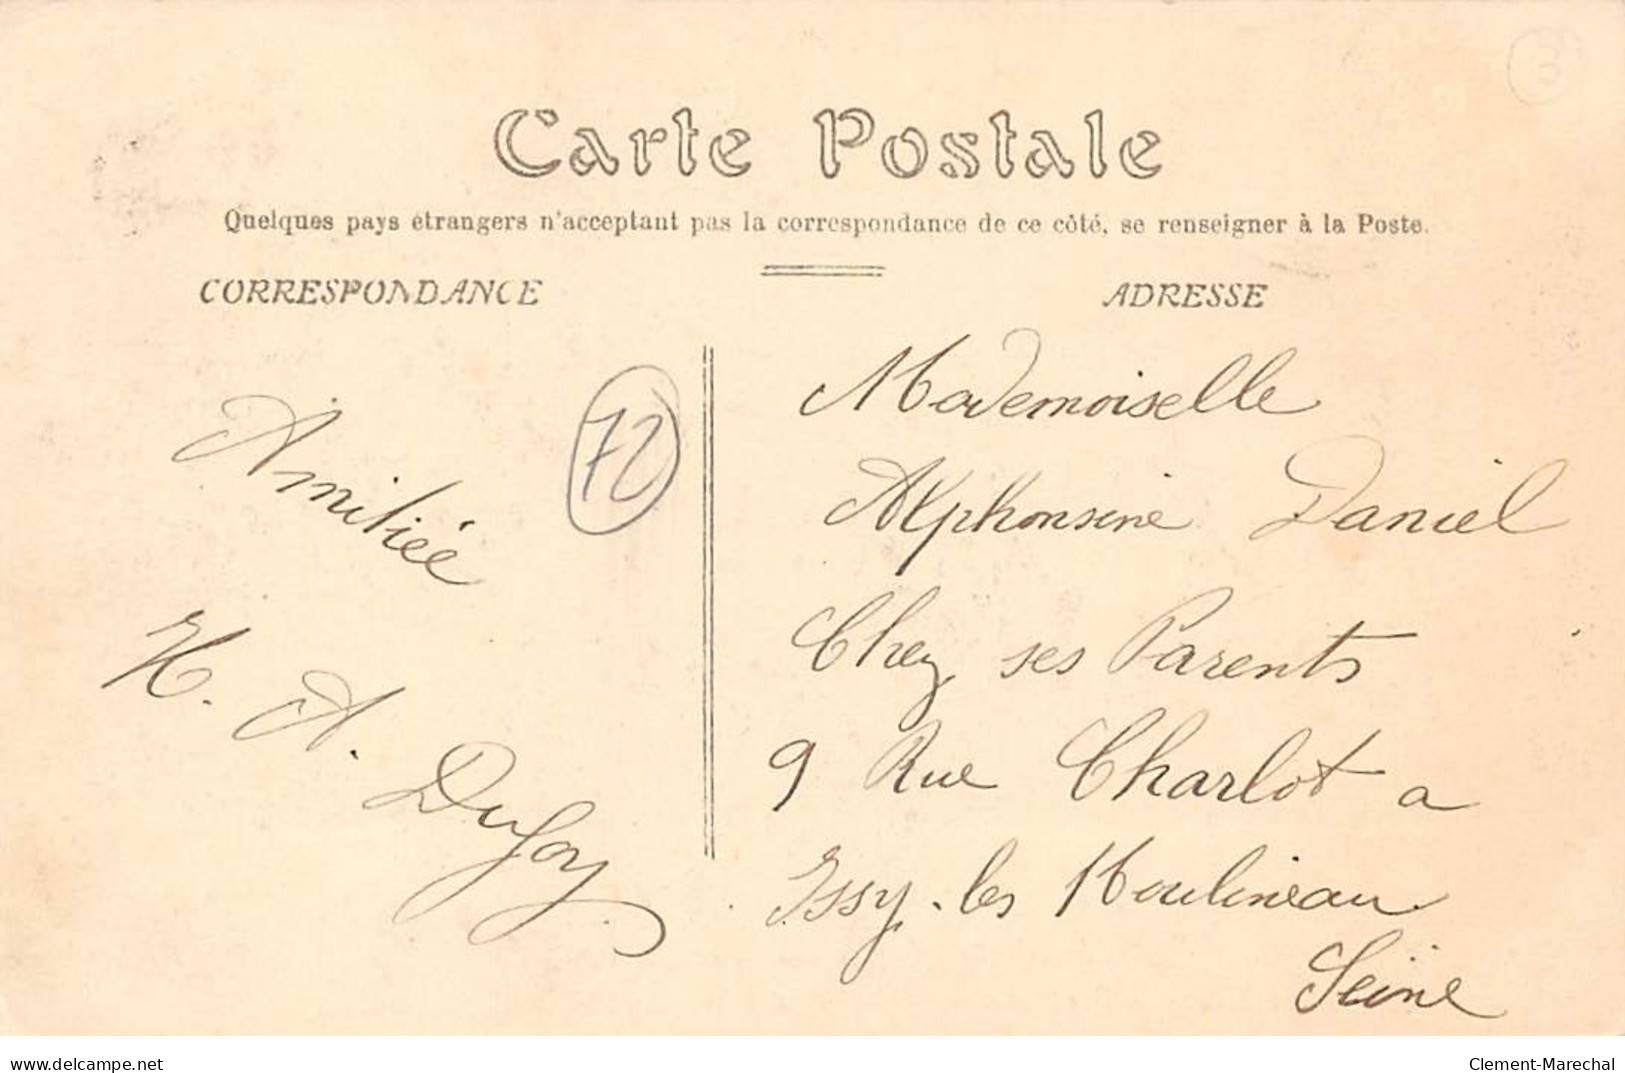 Carte Postale
Quelques pays étrangers n'acceptant pas la correspondance de ce côté, se renseigner à la Poste.
CORRESPONDANCE
ADRESSE
72
3
Amitiée
H. A. Dufoy
Mademoiselle
Alphonsine Daniel
Chez ses Parents
9 Rue Charlot a
Issy-les Moulineau
Seine
www.delcampe.net
Clement-Marechal